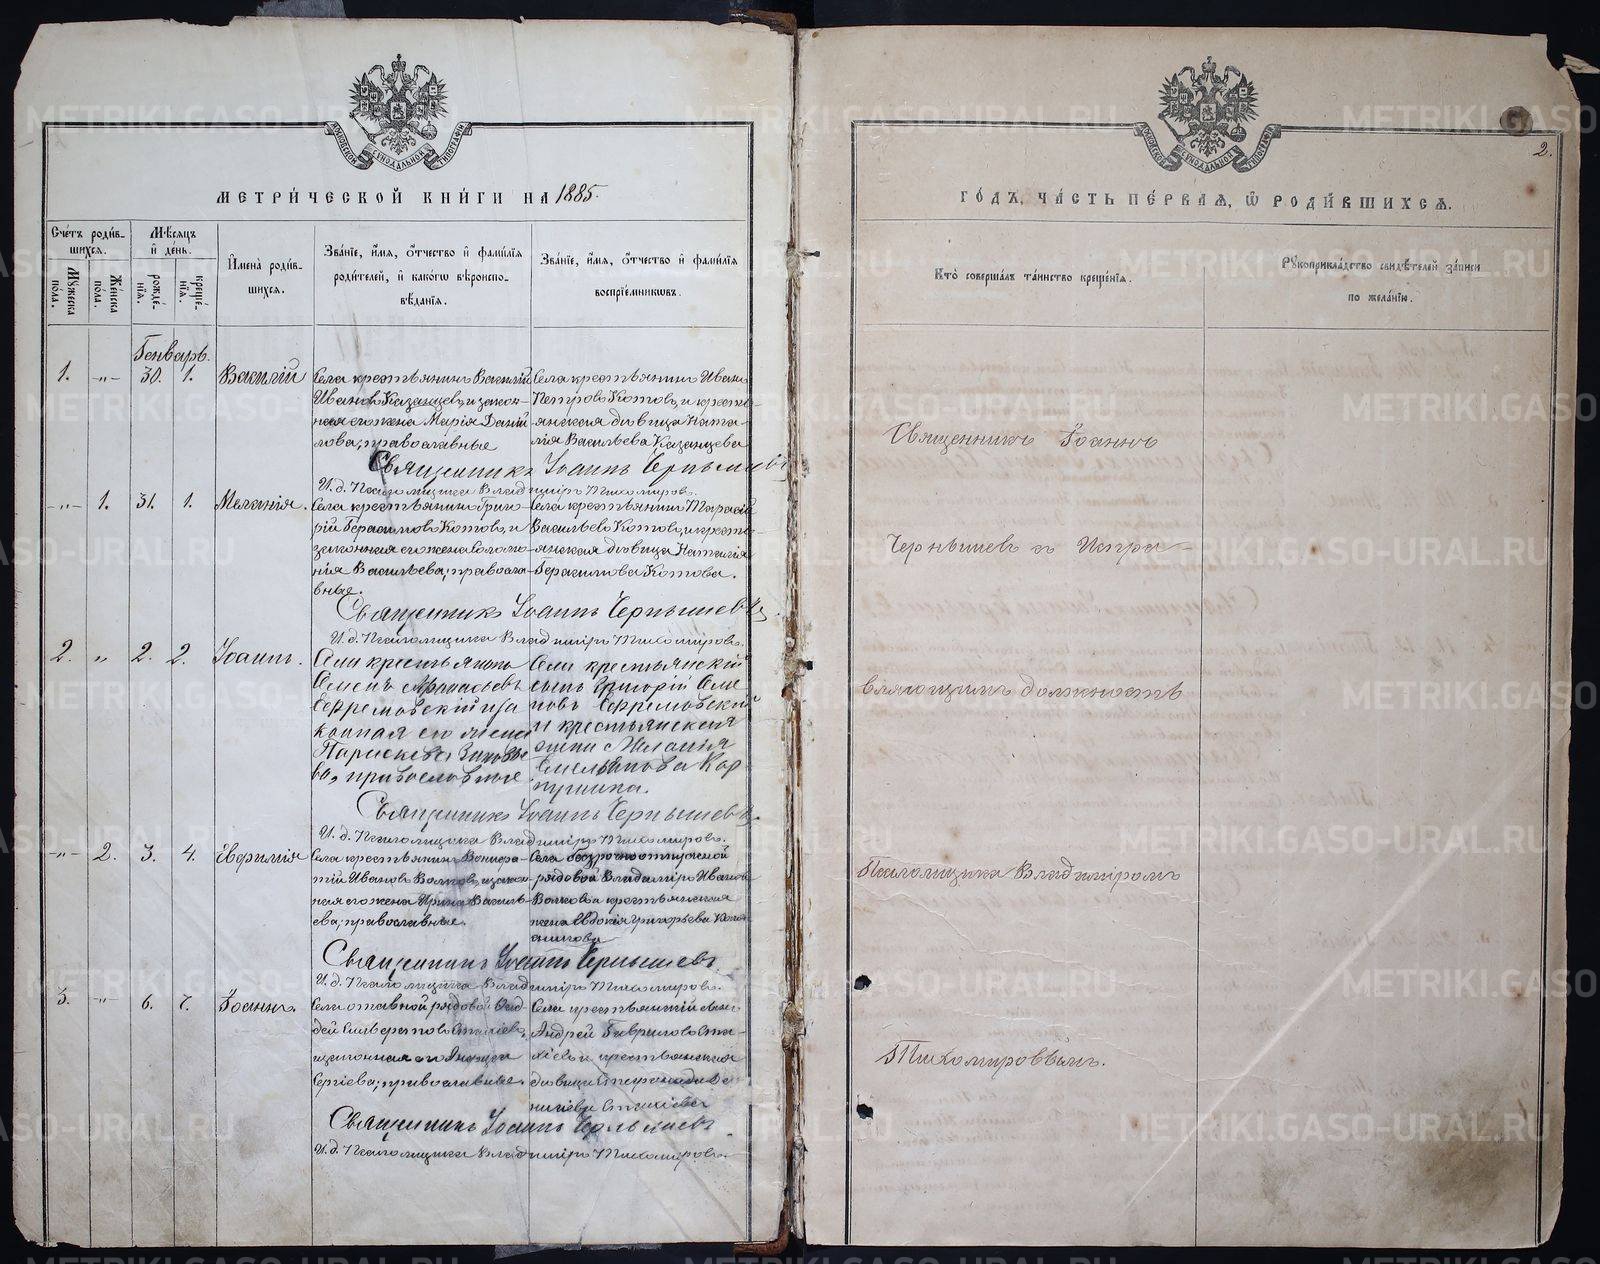 МЕТРИ́ЧЕСКОЙ КНИ́ГИ НА 1885.
Сче́тъ роди́в-
шихся.
Мѣ́сяцъ
и҆ де́нь.
Му́жеска
по́ла.
Же́нска
по́ла.
рожде́-
нїѧ.
креще́-
нїѧ.
И҆мена̀ роди́в-
шихсѧ.
Зва́нїе, и҆́мѧ, ѻ҆́тчество и҆ фами́лїѧ
роди́телей, и҆ како́гѡ вѣроиспо-
вѣ́данїѧ.
Зва́нїе, и҆́мѧ, ѻ҆́тчество и҆ фами́лїѧ
воспрїе́мникѡвъ.
Генварь.
1. -"- 30. 1. Василій
Села крестьянинъ Василій
Ивановъ Казанцевъ, и закон-
ная его жена Марія Даніи-
лова, православные
Села крестьянинъ Иванъ
Петровъ Котовъ, и кресть-
янская дѣвица Ната-
лія Васильева Казанцева
Священникъ Іоаннъ Чернышевъ
И. д. Псаломщика Владиміръ Тихомировъ.
-"- 1. 31. 1. Меланія.
Села крестьянинъ Григо-
рій Герасимовъ Котовъ, и
законная его жена Соломо-
нія Васильева, правосла-
вные.
Села крестьянинъ Тарасій
Васильевъ Котовъ, и кресть-
янская дѣвица Наталія
Герасимова Котова.
Священникъ Іоаннъ Чернышевъ
И. д. Псаломщика Владиміръ Тихомировъ.
2. " 2. 2. Іоаннъ.
Села крестьянинъ
Семенъ
Ефремовскій и за
конная его жена
Параскева
ва, православные
Села крестьянскій
сынъ Григорій Семе
новъ Ефремовскій
и крестьянская
жена Меланія
Емельянова Кор
Священникъ Іоаннъ Чернышевъ
И. д. Псаломщика Владиміръ Тихомировъ.
-"- 2. 3. 4. Евфимія
Села крестьянинъ Вонифа-
тій Ивановъ Волковъ, и закон-
ная его жена Ирина Василь-
ева, православные.
Села безсрочноотпускной
рядовой Владиміръ Ивановъ
Волковъ и крестьянская
жена Евдокія Григорьева
Священникъ Іоаннъ Чернышевъ
И. д. Псаломщика Владиміръ Тихомировъ.
3. -"- 6. 7. Іоаннъ.
Села отставной рядовой
дей
и законная его
Сергіева, православные.
Села крестьянскій сынъ
Андрей Гавриловъ Ста-
хіевъ и крестьянская
дѣвица
Стахіева
Священникъ Іоаннъ Чернышевъ
И. д. Псаломщика Владиміръ Тихомировъ.
2.
ГО́ДЪ, ЧА́СТЬ ПЕ́РВАѦ, Ѡ҆ РОДИ́ВШИХСѦ.
Кто̀ соверша́лъ та́инство креще́нїѧ.
Рꙋкоприкла́дство свидѣ́телей за́писи
по жела́нїю.
Священникъ Іоаннъ
Чернышевъ съ Испра-
вляющимъ должность
Псаломщика Владиміромъ
Тихомировымъ.